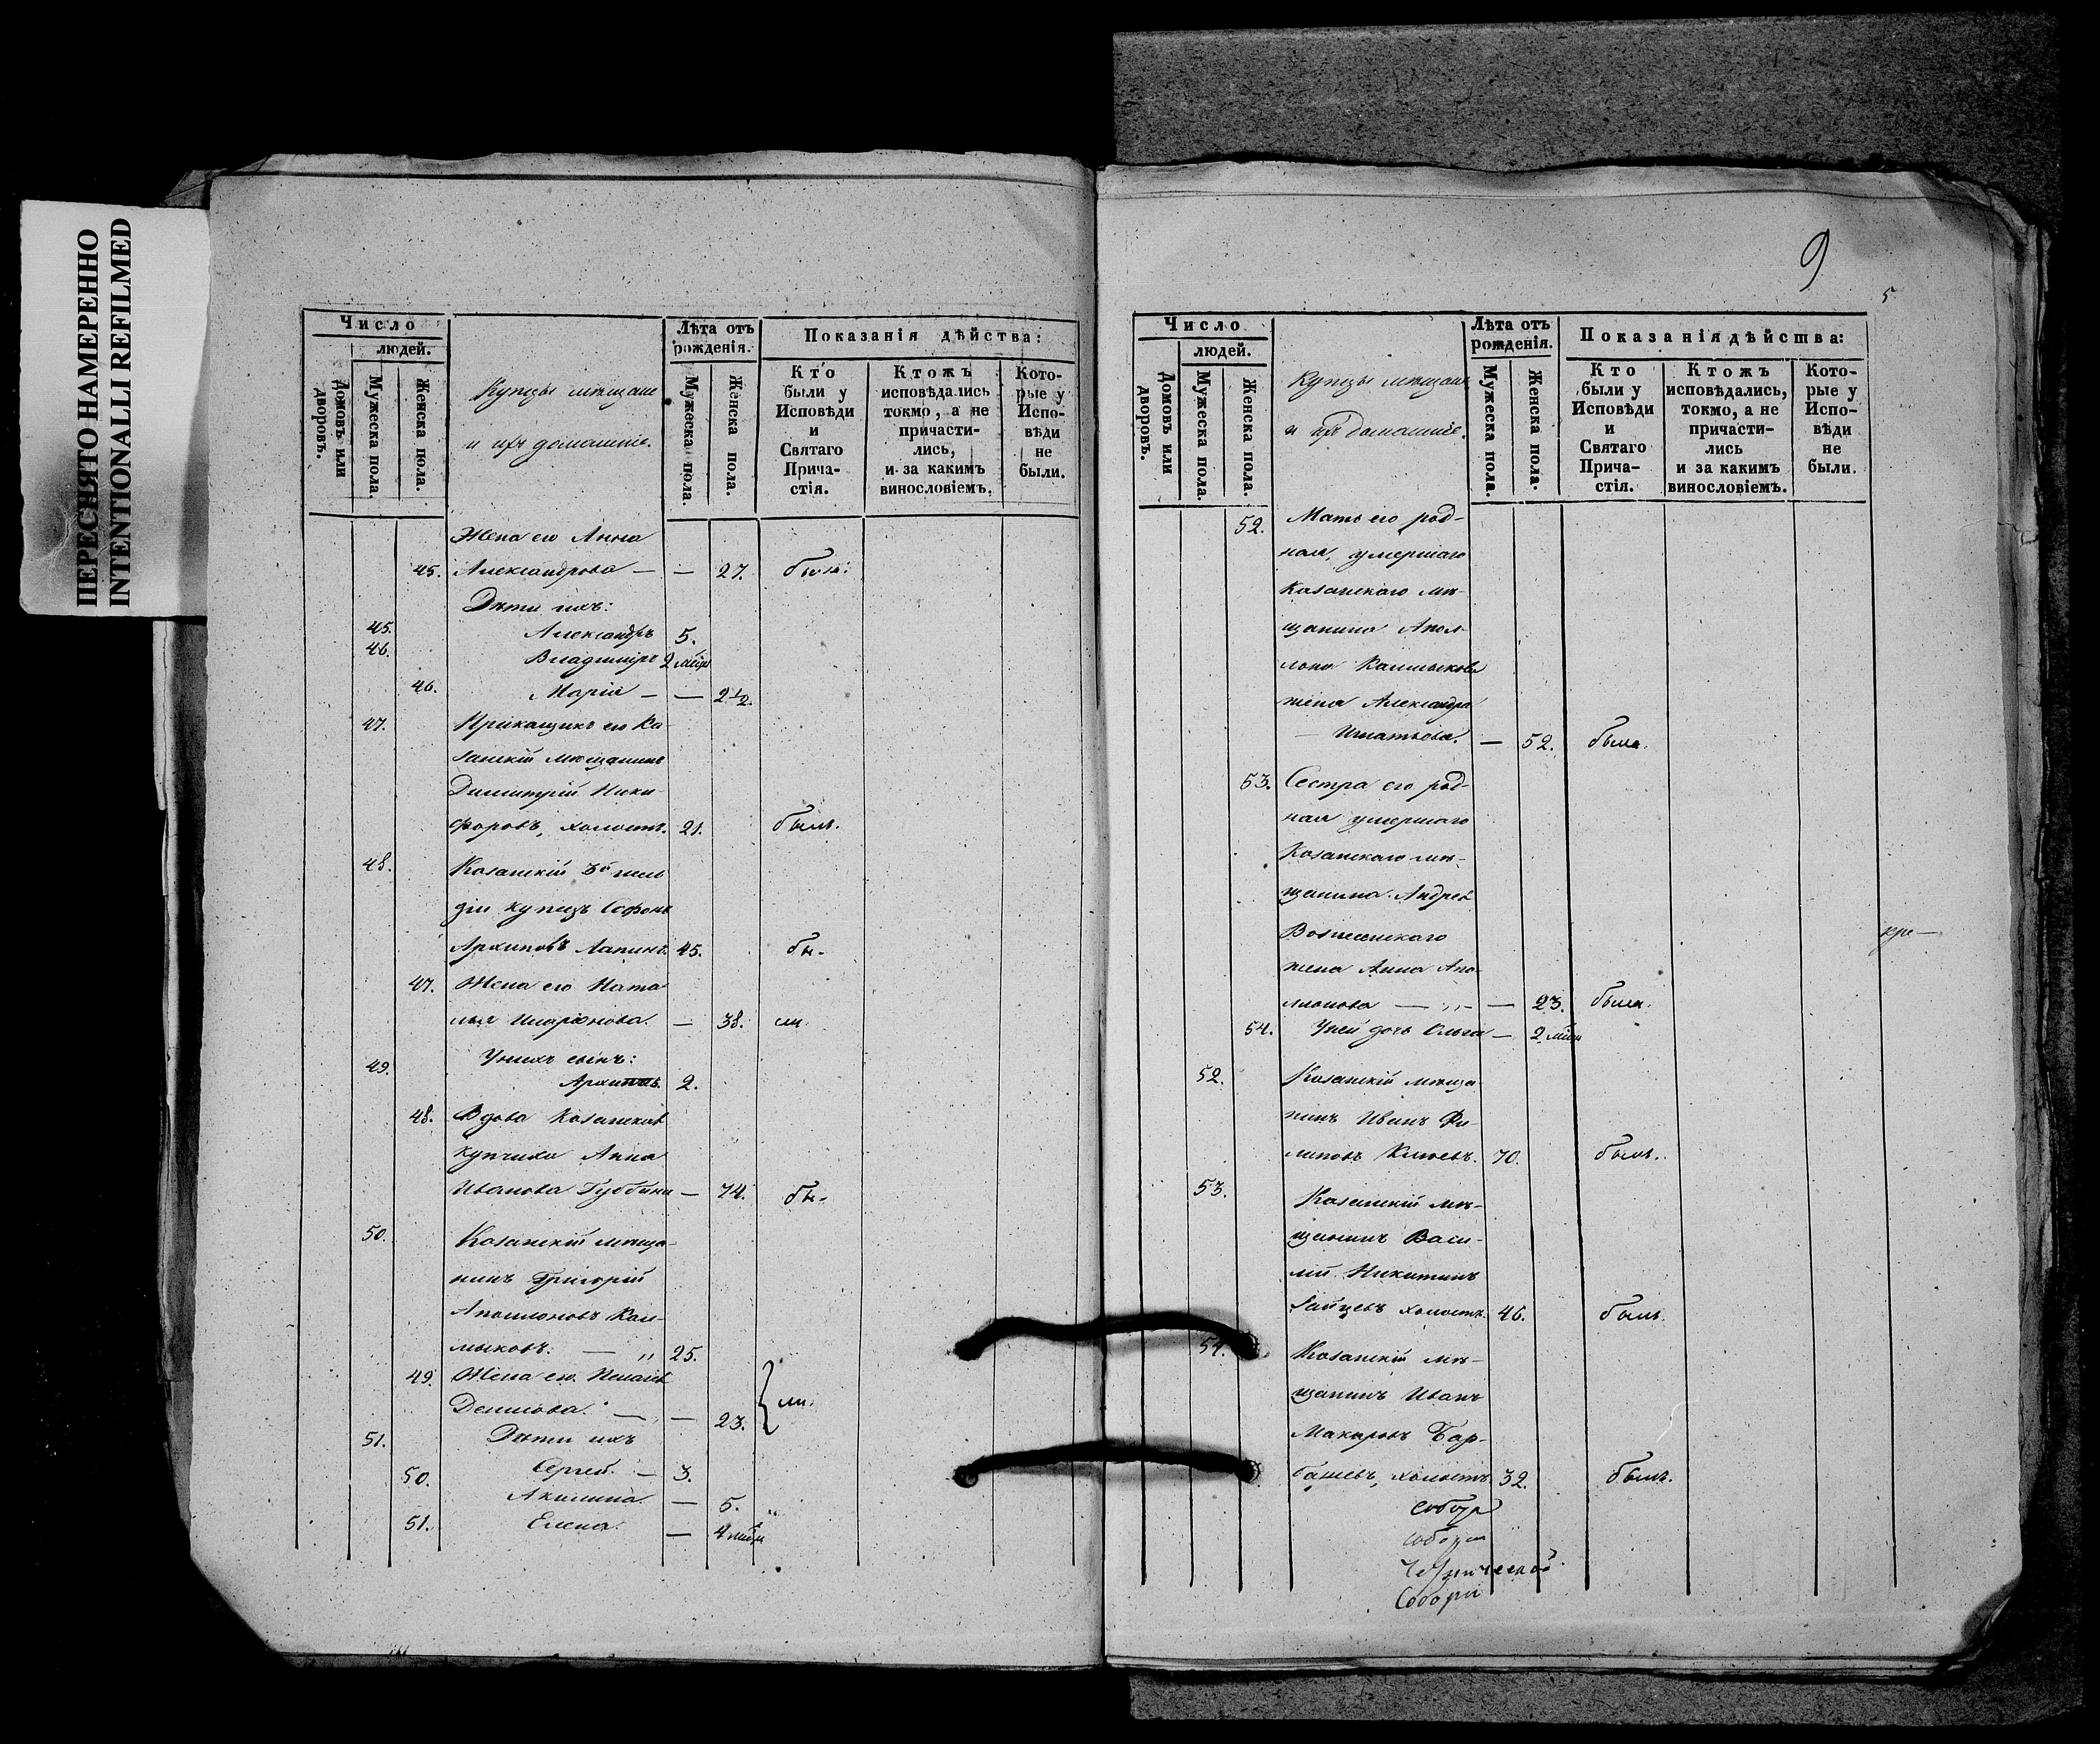 ПЕРЕСНЯТО НАМЕРЕННО
INTENTIONALLI REFILMED
Число
людей.
Домовъ или дворовъ.
Мужеска пола.
Женска пола.
Купцы мѣщане
и ихъ домашніе.
Лѣта отъ рожденія.
Мужеска пола
Женска пола.
Показанія дѣйства:
Кто были у Исповѣди и Святаго Прича-стія.
Ктожъ исповѣдались токмо, а не причасти-лись, и за какимъ винословіемъ.
Кото-рые у Испо-вѣди не были.
Жена его Анна
45. Александрова — — 27. была:
Дѣти ихъ:
45. Александръ 5.
46. Владиміръ 2
46. Марія — — 2 1/2.
47. Прикащикъ его Ка-
занскій мѣщанинъ
Димитрій Ники-
форовъ, холостъ. 21. былъ.
48. Казанскій 3й гиль
діи купецъ
Архиповъ Лапинъ. 45. бы-
47. Жена его Ната
лья Иларіонова. — 38. ли.
У нихъ сынъ:
49. Архипъ. 2.
48. Вдова Казанская
купчиха Анна
Иванова — 74. бы-
50. Казанскій мѣща-
нинъ Григорій
Аполлоновъ Кал-
мыковъ. — „ 25.
49. Жена его
— — 23. ли.
51. Дѣти ихъ
Сергей. — 3.
50. Акилина. — 5.
51. Елена. — 4
9
5
Число
людей.
Домовъ или дворовъ.
Мужеска пола.
Женска пола.
Купцы мѣщане
и ихъ домашніе.
Лѣта отъ рожденія.
Мужеска пола.
Женска пола.
Показанія дѣйства:
Кто были у Исповѣди и Святаго Прича-стія.
Ктожъ исповѣдались, токмо, а не причасти-лись и за какимъ винословіемъ.
Кото-рые у Испо-вѣди не были.
52. Мать его род-
ная, умершаго
Казанскаго мѣ-
щанина Апол-
лона Калмыкова
жена Александра
Игнатьева. — 52. была.
53. Сестра его род-
ная умершаго
Казанскаго мѣ-
щанина Андрея
Вознесенскаго
жена Анна Апо-
лонова — „ — — 23. была.
54. У ней дочь Ольга — 2
52. Казанскій мѣща-
нинъ Иванъ Фи-
липовъ 70. былъ.
53. Казанскій мѣ-
щанинъ Васи-
лій Никитинъ
Зайцевъ холостъ. 46. былъ.
54. Казанскій мѣ-
щанинъ Иванъ
Макаровъ Бар-
башевъ, холостъ 32. былъ.